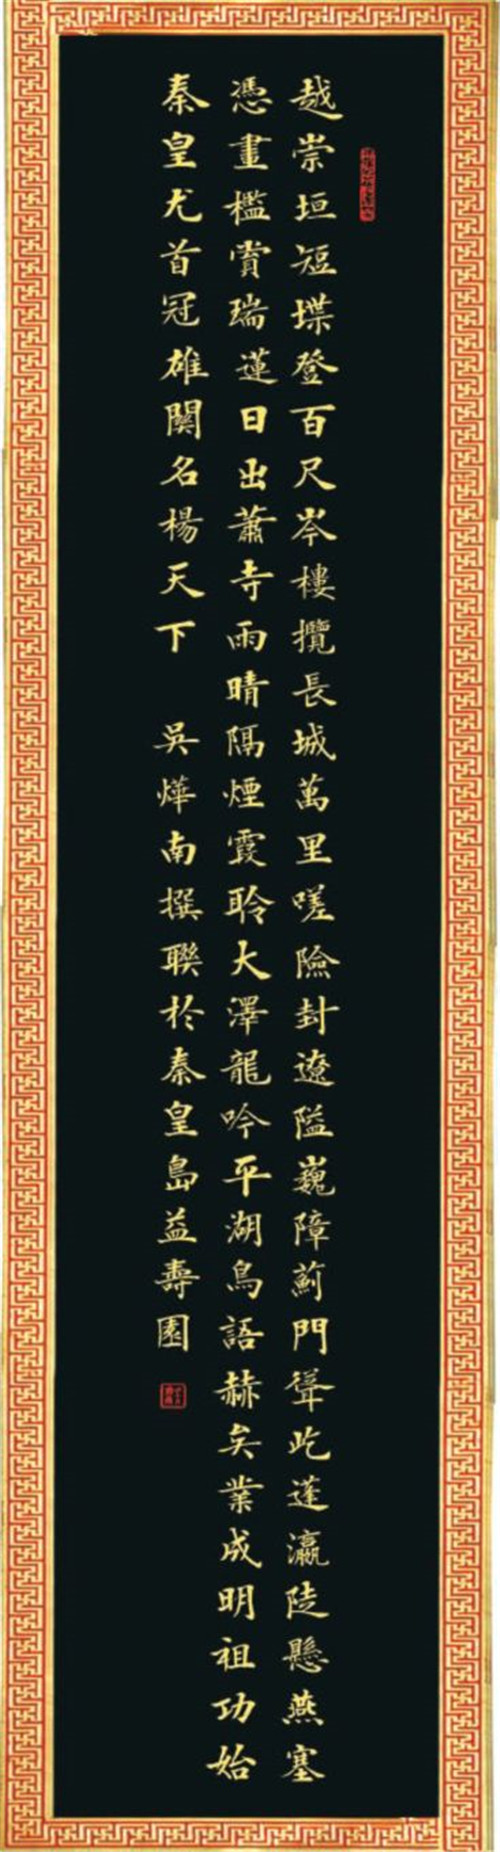 越崇垣短堞登百尺岑樓攬長城萬里嗟險封遼隘巍障薊門聳屹蓬瀛陡懸燕塞
憑畫檻賞瑞蓮日出蕭寺雨晴隔煙霞聆大澤龍吟平湖鳥語赫矣業成明祖功始
秦皇尤首冠雄關名楊天下 吳燁南撰聯於秦皇島益壽園